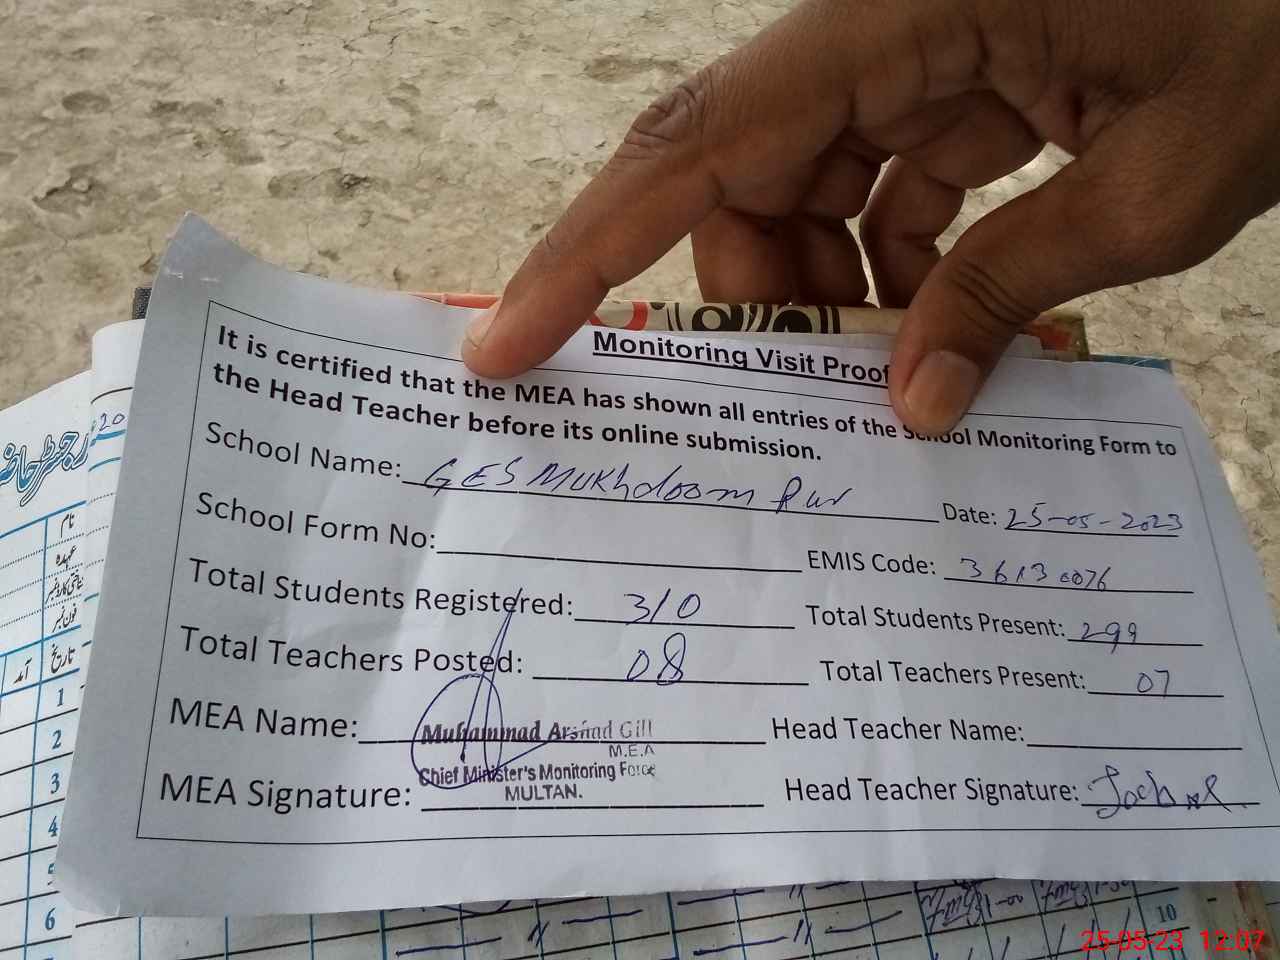 Monitoring Visit Proof
It is certified that the MEA has shown all entries of the School Monitoring Form to
the Head Teacher before its online submission.
School Name: GES Mukhdoom Pur Date: 25-05-2023
School Form No: EMIS Code: 36130076
Total Students Registered: 310 Total Students Present: 299
Total Teachers Posted: 08 Total Teachers Present: 07
MEA Name: Muhammad Arshad Gill Head Teacher Name:
M.E.A
Chief Minister's Monitoring Force
MULTAN.
MEA Signature: Head Teacher Signature:
20
رجسٹر حاضر
نام
عہدہ
شناختی کارڈ نمبر
فون نمبر
تاریخ آمد
1
2
3
4
5
6
10
25-05-23 12:07